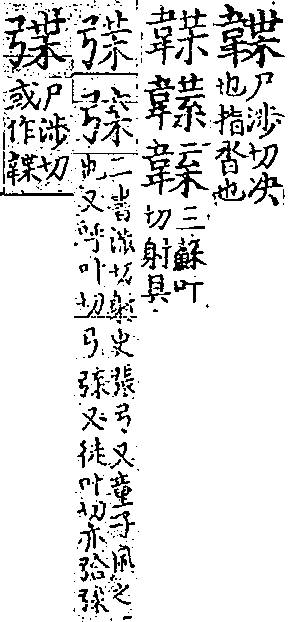 韘尸涉切决
也指沓也
三蘇叶
切射具
弽
二書涉切射史張弓又童子佩之
也又呼叶切弓弽又徒叶切亦
弽尸涉切
或作韘